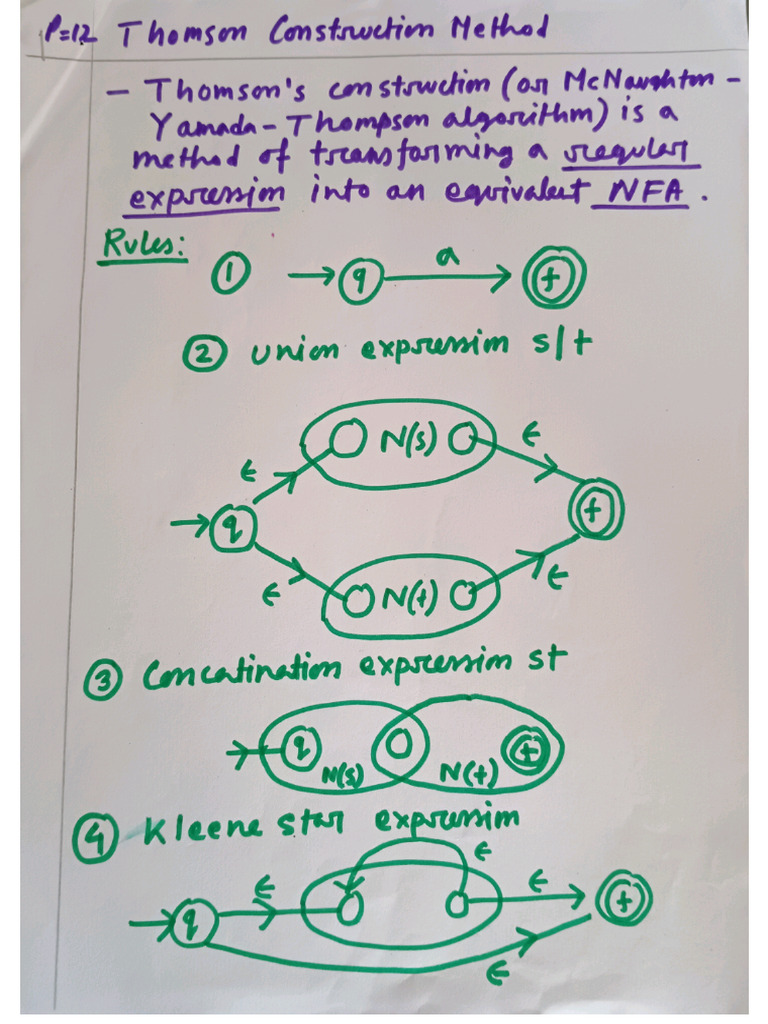 P=12 Thomson Construction Method
- Thomson's construction (or McNaughton-
Yamada-Thompson algorithm) is a
method of transforming a regular
expression into an equivalent NFA.
Rules:
① q a f
② union expression s/t
N(s) ε
ε
q f
ε N(t) ε
③ Concatination expression st
q N(s) N(t) f
④ Kleene star expression
ε
q ε ε f
ε